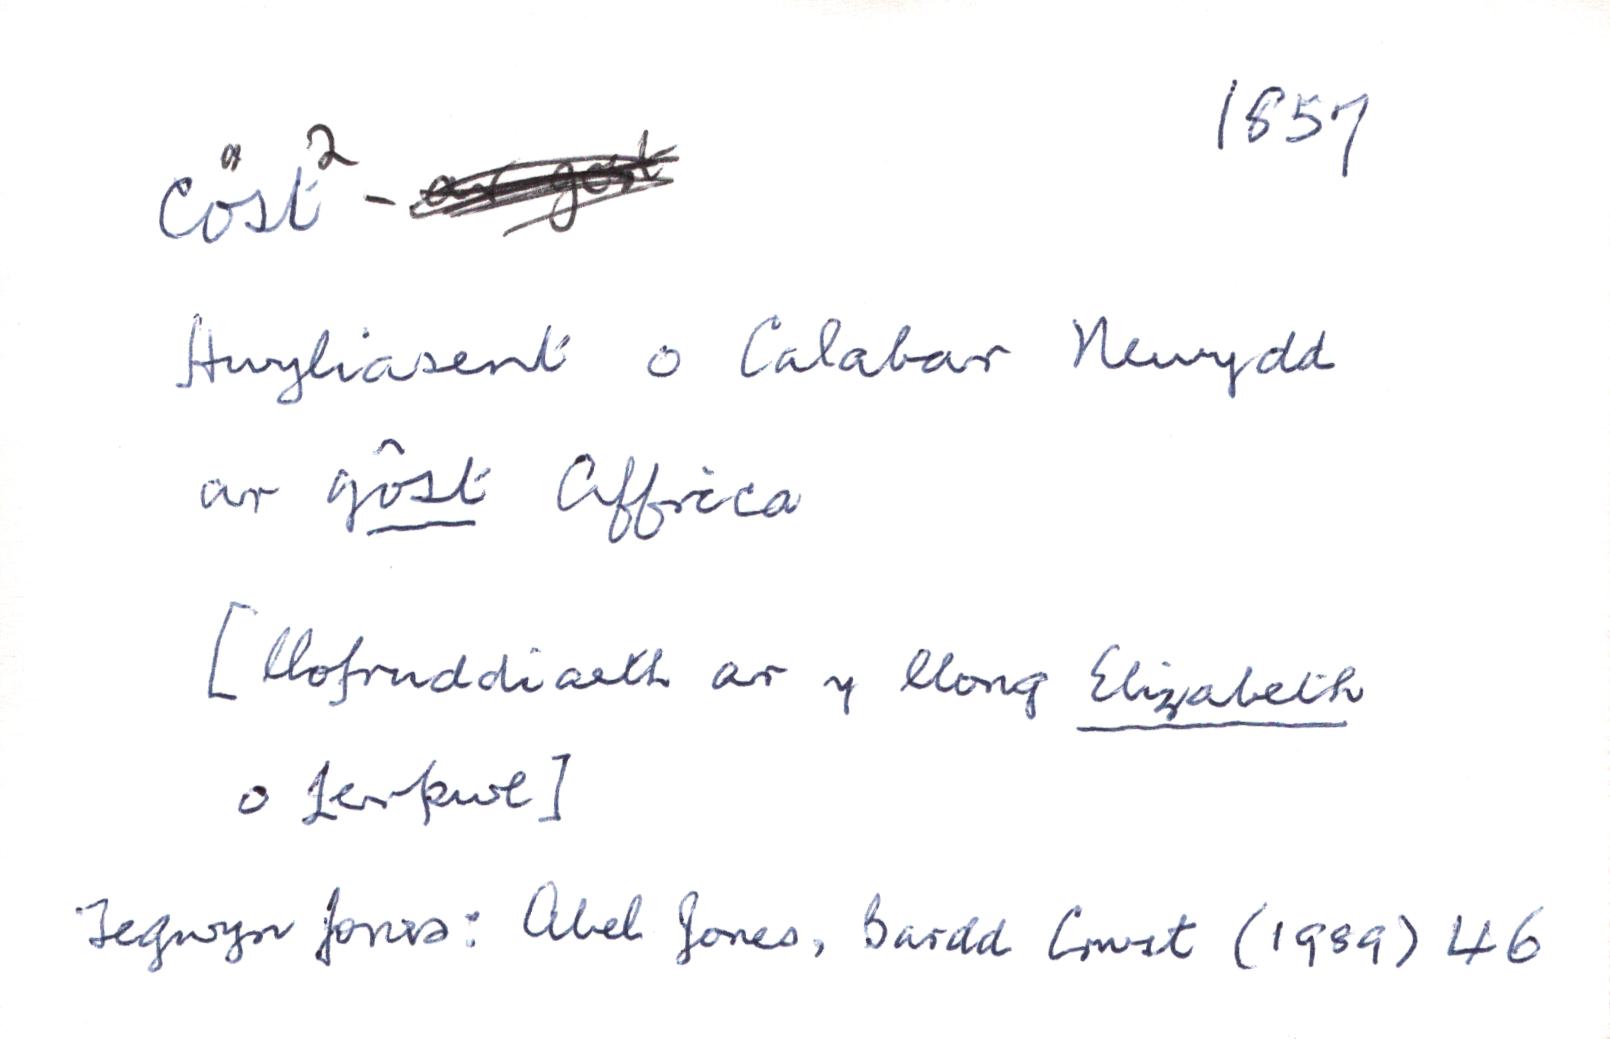 1857
cöst² - ar gost
Hwyliasent o Calabar Newydd
ar gôst Affrica
[llofruddiaeth ar y llong Elizabeth
o Lerpwl]
Tegwyn Jones: Abel Jones, Bardd Crwst (1989) 46